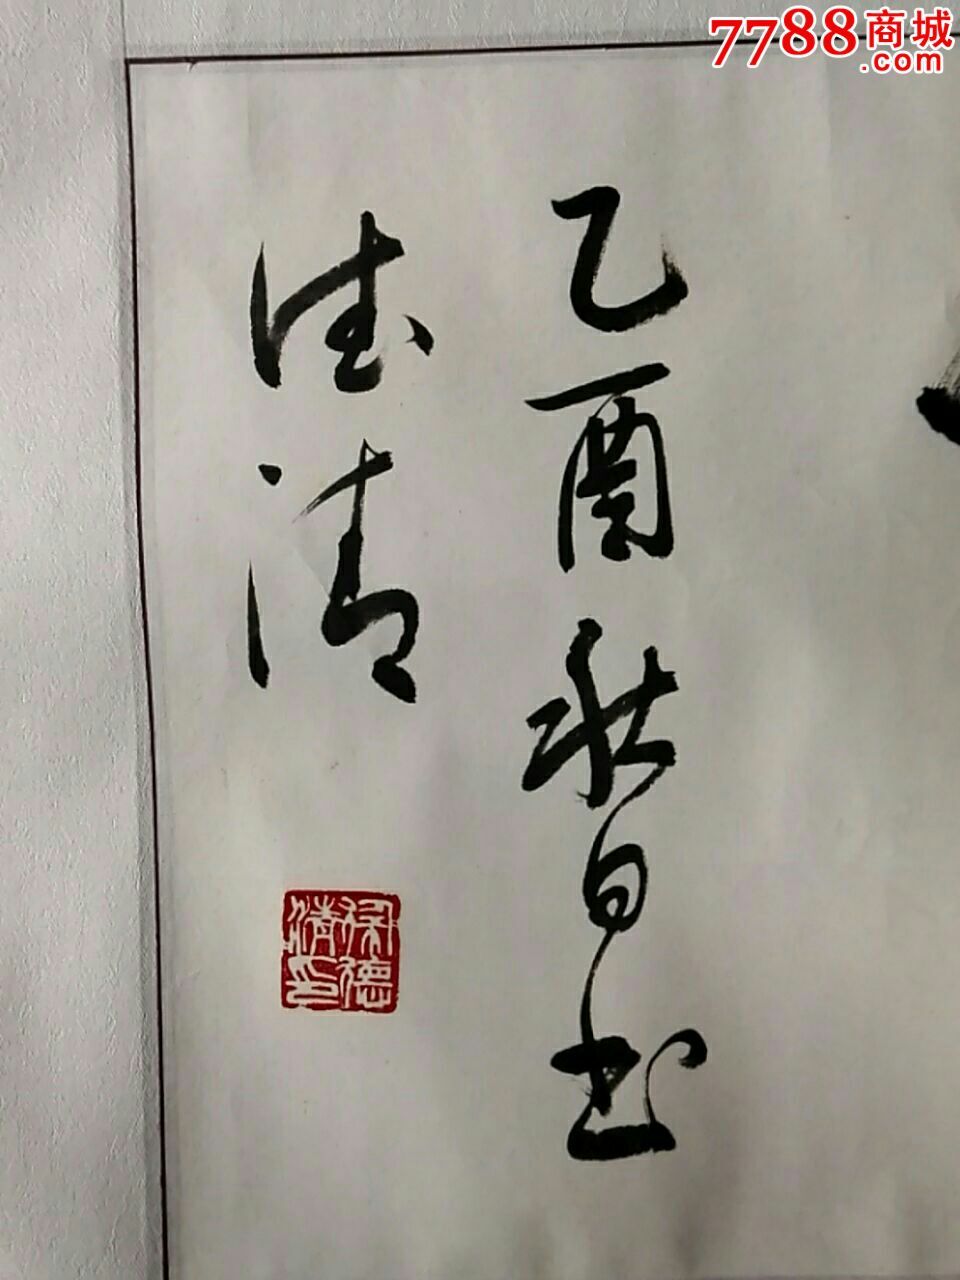 7788商城
.com
乙酉秋日书
德清
德清印